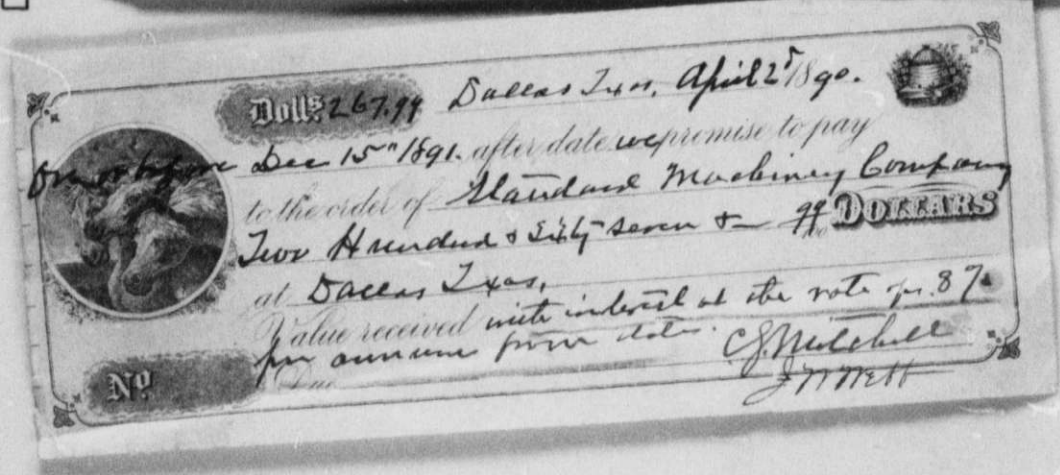 Dolls. 267.99 Dallas Texas, April 25 1890.
On or before Dec 15" 1891. after date we promise to pay
to the order of Standard Machinery Company
Two Hundred & Sixty seven & 99/100 DOLLARS
at Dallas Texas,
Value received with interest at the rate of 8%
per annum from date. C.J. Mitchell
No. Due J W Webb